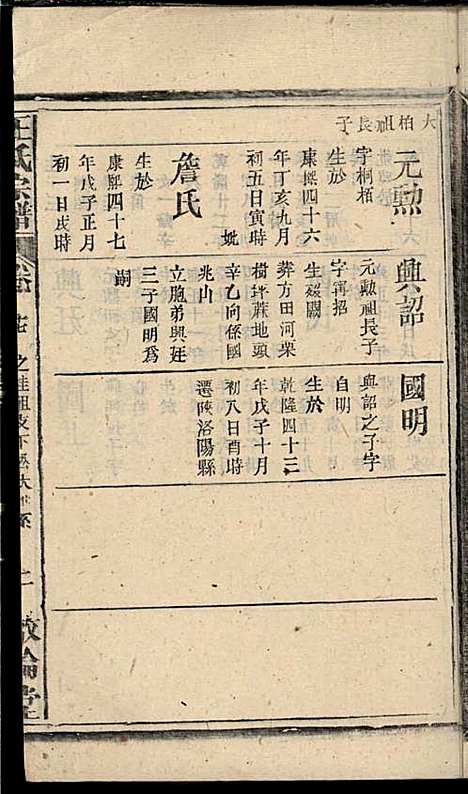 大柏祖長子
元勲
字桐栢
生於
康熙四十六
年丁亥九月
初五日寅時
妣
詹氏
生於
康熙四十七
年戊子正月
初一日戌時
興詔
元勲祖長子
字再招
生歿闕
葬方田河栗
樹坪蔴地頭
辛乙向係國
兆山
立胞弟興廷
三子國明爲
嗣
國明
興詔之子字
自明
生於
乾隆四十三
年戊子十月
初八日酉時
遷陝洛陽縣
王氏宗譜
敦倫堂